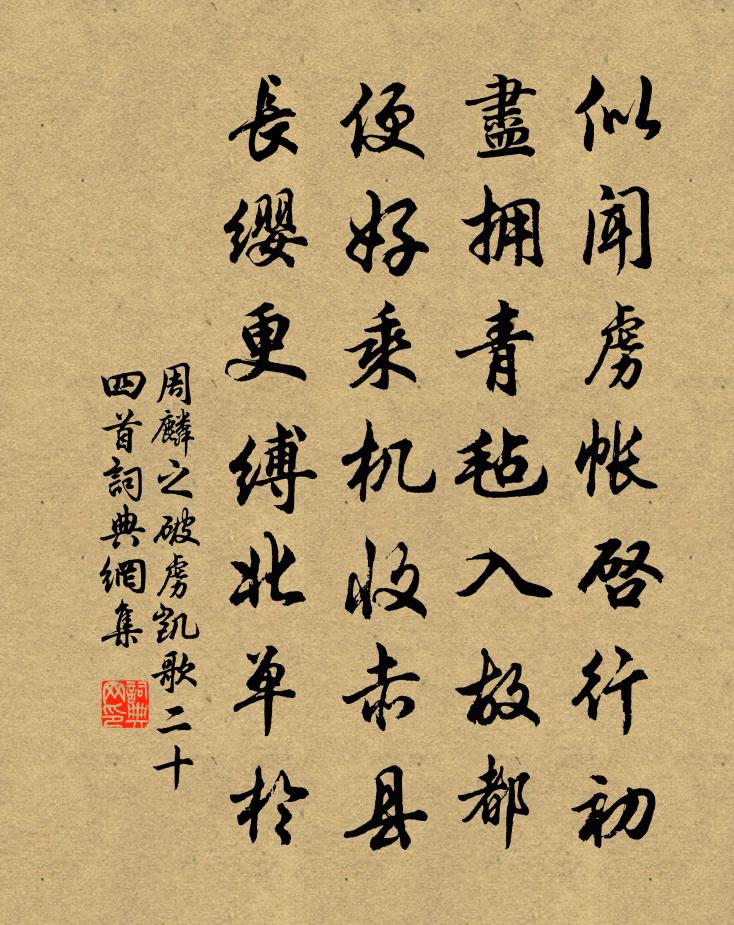 似闻虏帐启行初
盡拥青毡入故都
便好乘机收赤县
長缨更缚北单於
周麟之破虏凯歌二十
四首詞典網集
詞典
网印